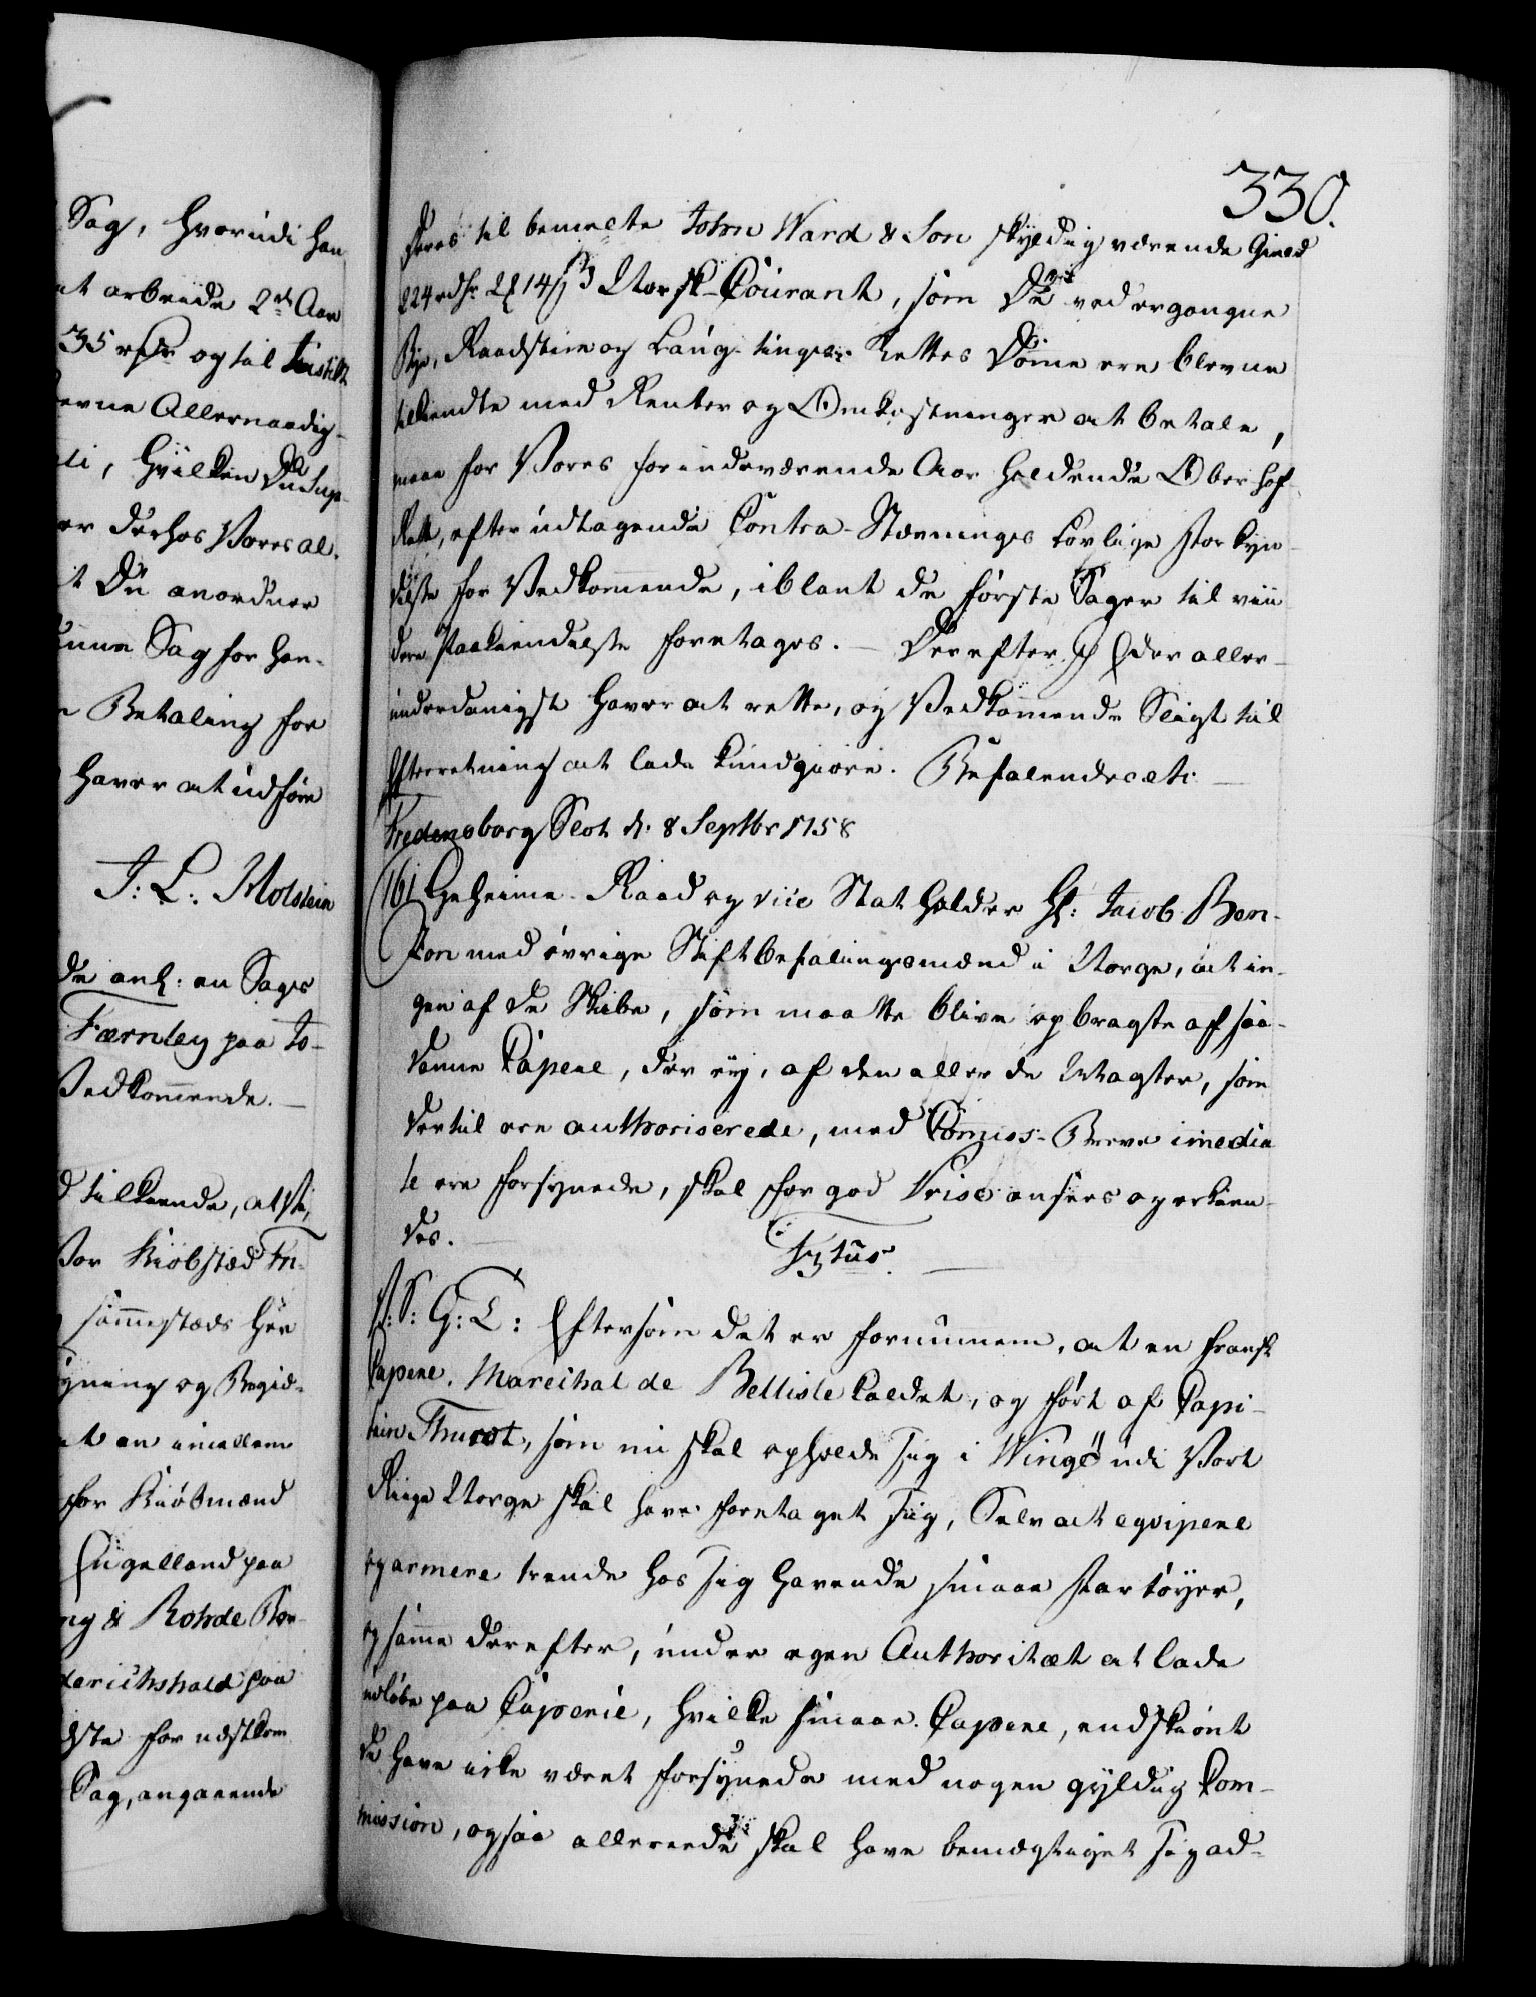 330.
Sag, hvorudi han
at arbeide 2de Aar
35 rdr og til Justitz
Allernaadig-
li, hvilken Du
er derhos Vores al-
t Du anordner
Sag for han-
Betaling for
haver at udføre
J: L: Holstein
de anl: en Sags
Færnley paa Jo-
Vedkommende.
d tilkiende, at Vi,
Vor Kiøbstæd Fri-
sammestæds her
at en imellem
for Kiøbmænd
Engelland paa
& Rohde
derichshald paa
for
Sag, angaaende
deres til bemelte John Ward & Son skyldig værende Gield
224 rdr 2 14 ß Dansk Courant, som De ved ergangne
Bye, Raadstue og Laug-tings- Rettes Domme ere blevne
tilkiendte med Renter og Omkostninger at betale,
maae for Vores forindeværende Aar holdende Ober Hof-
Rett, efter udtagende Contra-Stevnings lovlige Forkyn-
delse for Vedkommende, iblant de første Sager til vii-
dere Paakiendelse foretages. — Derefter I Eder aller-
underdanigst haver at rette, og Vedkommende Sligt til
Efterretning at lade kundgiøre. Befalendes etc:
Fredensborg Slot d. 8 Septbr 1758
161 Geheime-Raad og vice Statholder Hl: Jacob Ben-
zon med øvrige Stiftbefalingsmænd i Norge, at in-
gen af de Skibe, som maatte blive opbragte af saa-
danne Capere, der ey, af den eller de Magter, som
dertil ere authoriserede, med Commiss-Breve imedia
te ere forsynede, skal for god Prise ansees og erkien-
des.
F: 5tus.
F: G: T: Eftersom det er fornummen, at en fransk
Capere, Marechal de Bellisle kaldet, og ført af Capi-
tain Thurot, som nu skal opholde sig i Wingøe udi Vort
Riige Norge skal have foretaget sig, Selv at eqvipere
og armere trende hos sig havende smaae Fartøyer,
og samme derefter, under egen Authoritæt at lade
udløbe paa Caperie, hvilke smaae Capere, endskiønt
de have icke været forsynede med nogen gyldig Com-
mission, ogsaa allereede skal have bemægtiget sig ad-